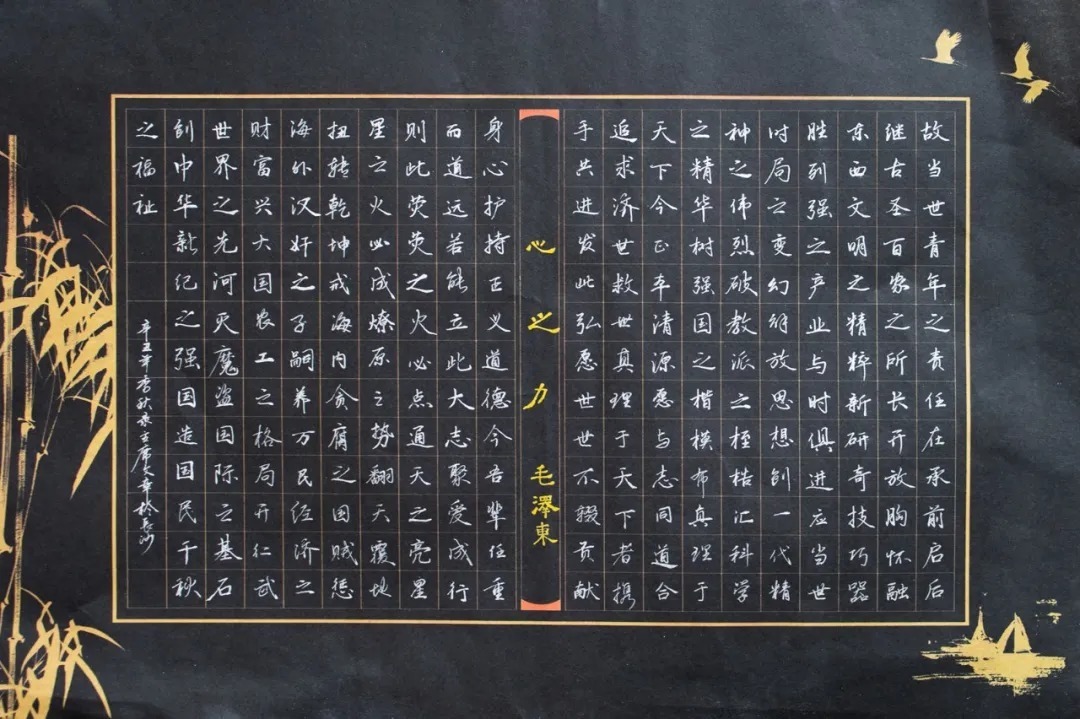 故当世青年之责任在承前启后
继古圣百家之所长开放胸怀融
东西文明之精粹新研奇技巧器
胜列强之产业与时俱进应当世
时局之变幻解放思想创一代精
神之伟烈破教派之桎梏汇科学
之精华树强国之楷模布真理于
天下今正本清源愿与志同道合
追求济世救世真理于天下者携
手共进发此弘愿世世不辍贡献
心之力 毛澤東
身心护持正义道德今吾辈任重
而道远若能立此大志聚爱成行
则此荧荧之火必点通天之亮星
星之火必成燎原之势翻天覆地
扭转乾坤戒海内贪腐之国贼惩
海外汉奸之子嗣养万民经济之
财富兴大国农工之格局开仁武
世界之先河灭魔盗国际之基石
创中华新纪之强国造国民千秋
之福祉
辛丑年季秋录主席文章於長沙